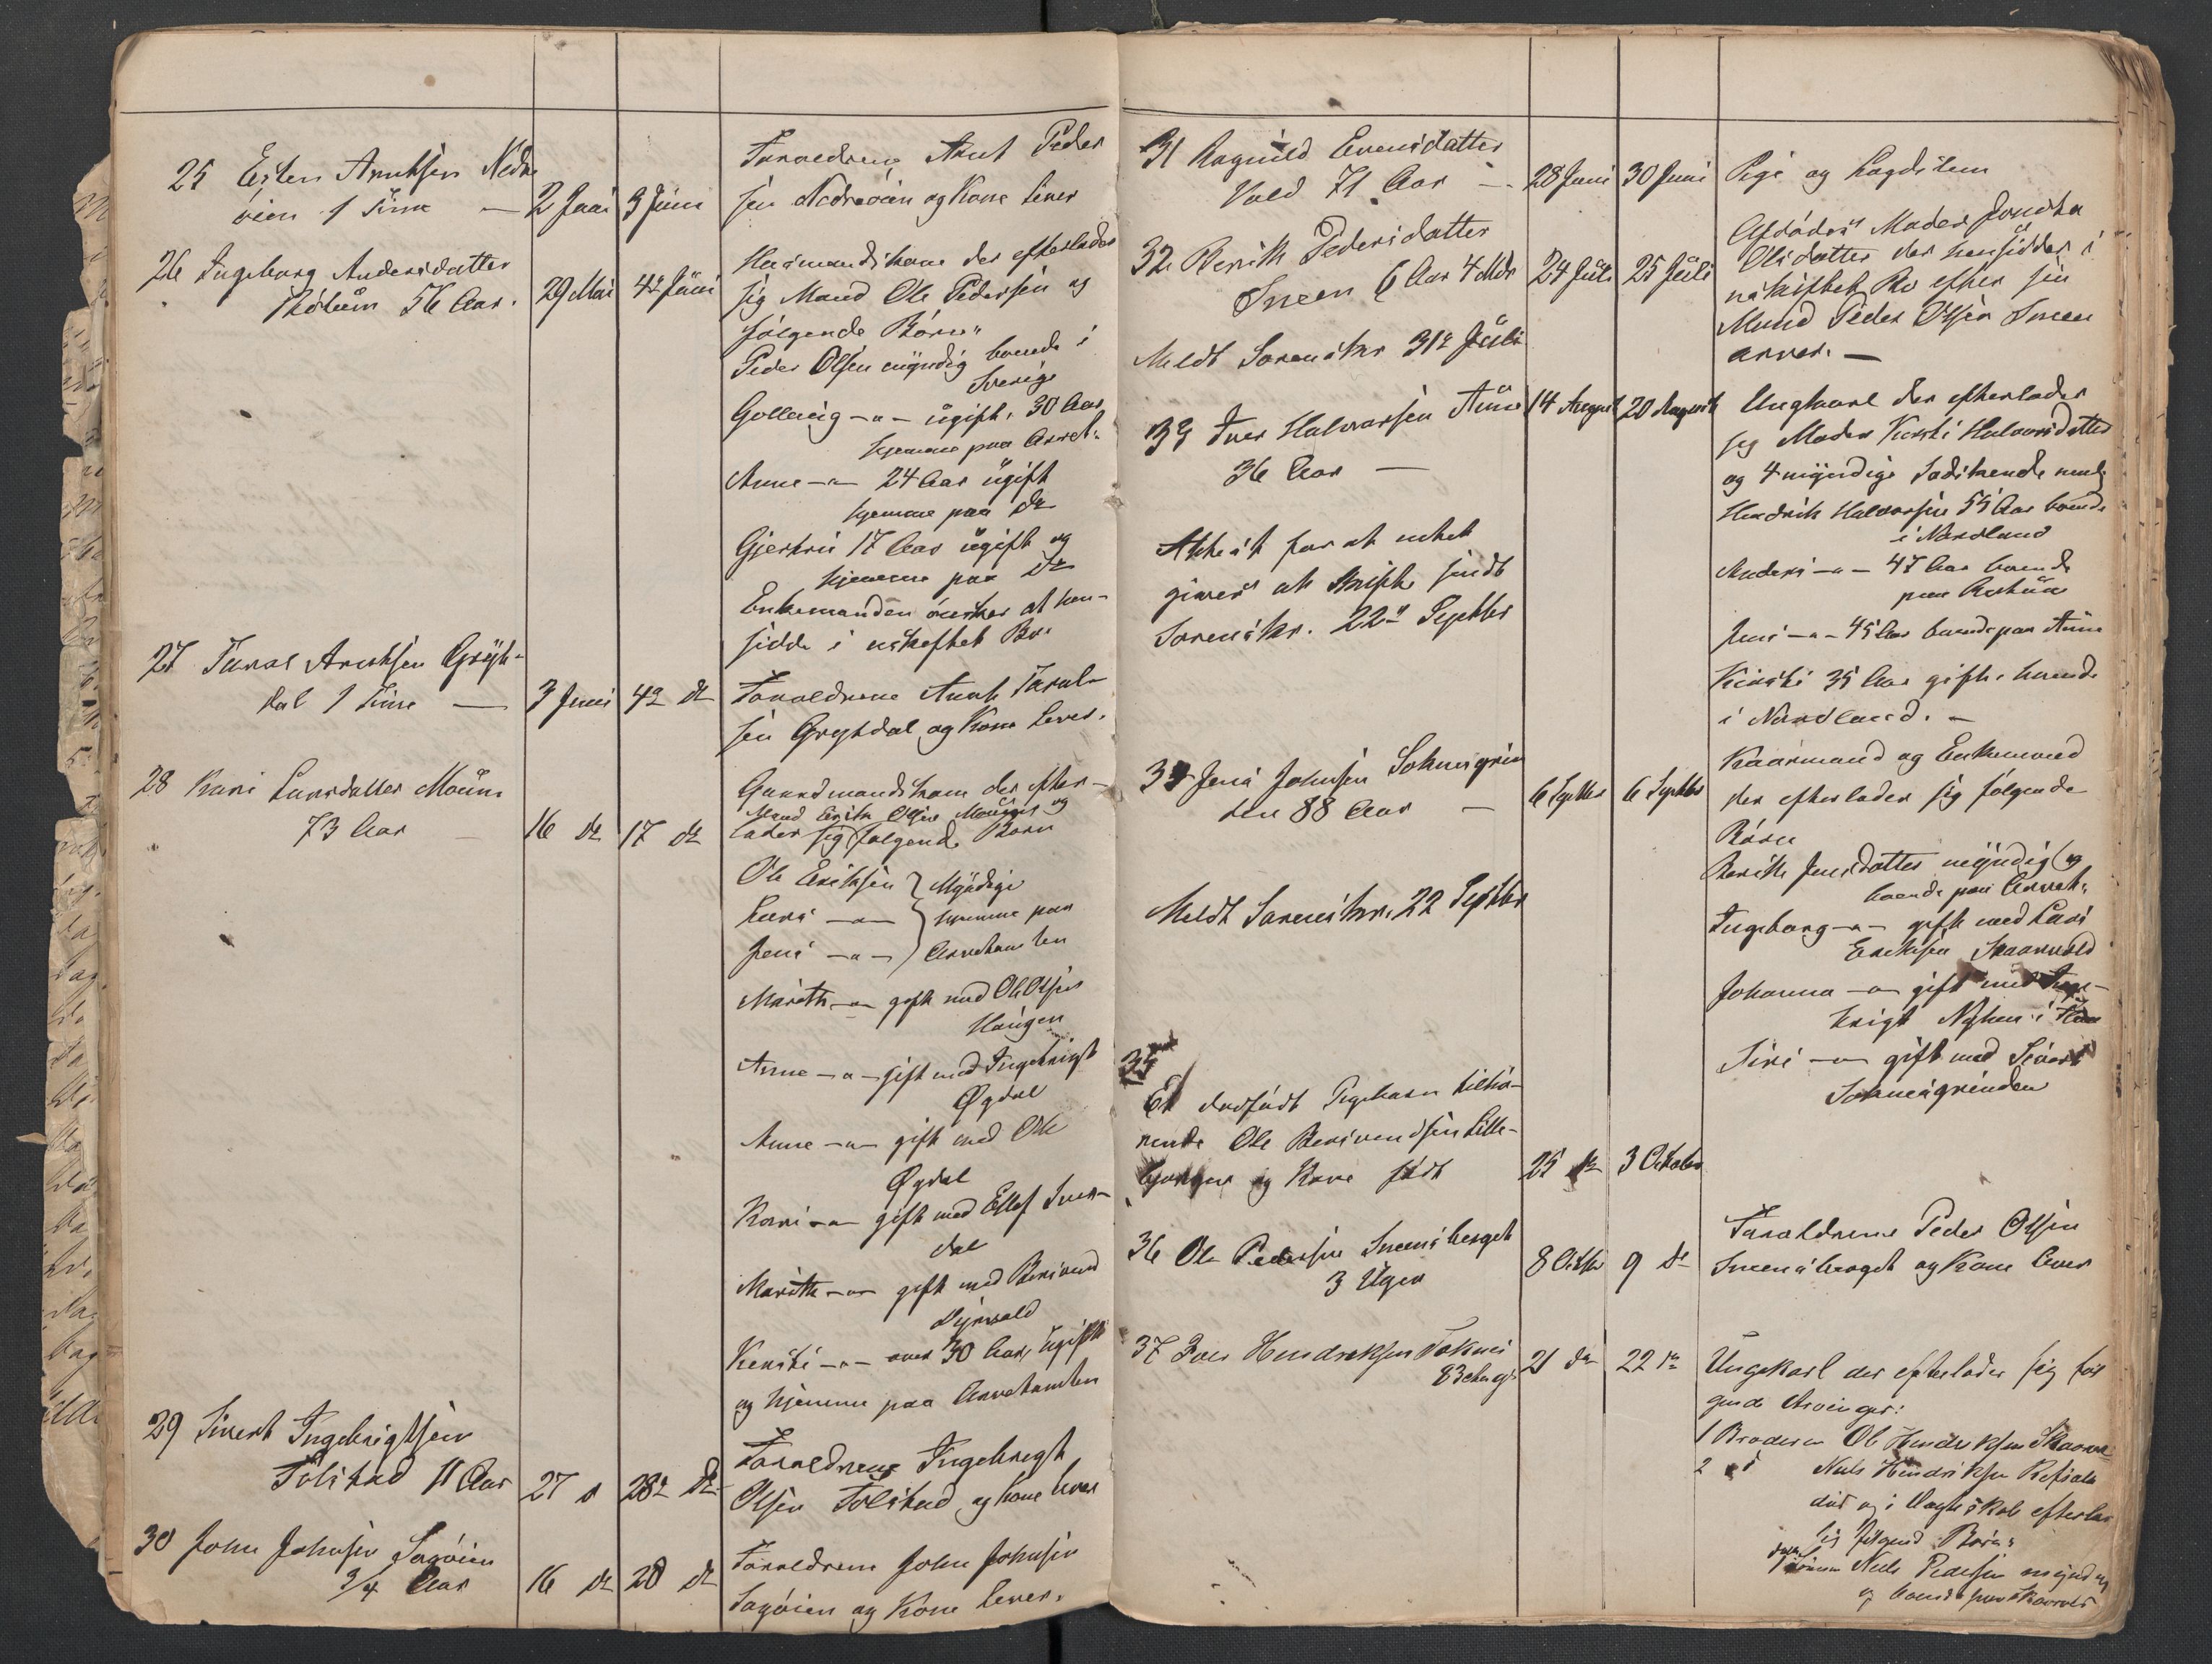 25 Esten Arntsen Nedre
øien 1 Time — 2 Juni 3 Juni
Foræeldrene Arnt Peder
sen Nedreøien og Kone Lever
26 Ingeborg Andersdatter
56 Aar. 29 Mai 4de Juni
Kaarmandskone der efterlader
sig Mand Ole Pedersen og
følgende Børn
Peder Olsen myndig boende i
Sverige
Gollaug —"— ugift. 30 Aar
hjemme paa Arvet.
Anne —"— 24 Aar ugift
hjemme paa do
Gjertrü 17 Aar ugift og
hjemme paa do
Enkemanden ønsker at hen-
sidde i uskiftet Bo.
27 Taral Arntsen Gryt-
dal 1 Time — 3 Juni 4de do
Foræeldrene Arnt Taral-
sen Grytdal og Kone Lever.
28 Kari Larsdatter Moüm
73 Aar — 16 do 17 do
Gaardmandskone der efter-
Mand Erik Olsen og
lader sig følgende Børn
Ole Eriksen } Myndige
Lars —"— } hjemme paa
Jens —"— } Arvetomten
Marith —"— gift med Ole Olsen
Haugen
Anne —"— gift med Ingebrigt
Øgdal
Anne —"— gift med Ole
Øgdal
Kari —"— gift med Ellef
dal
Marith —"— gift med Bersvend
Kirsti —"— over 30 Aar, ugift
og hjemme paa Arvetomten
29 Sivert Ingebrigtsen
Folstad 11 Aar 27 d 28de do
Foræeldrene Ingebrigt
Olsen Folstad og Kone Lever
30 John Johnsen Sagøien
3/4 Aar 16 do 20 do
Foræeldrene John Johnsen
Sagøien og Kone Lever.
31 Ragnild Evensdatter
Vold 71 Aar — 28 Juni 30 Juni
Pige og Lægdslem
32 Berith Pedersdatter
Sneen 6 Aar 4 Mdr 24 Juli 25 Juli
Afdødes Moder
Olsdatter der hensidder i
uskiftet Bo efter sin
Mand Peder Olsen Sneen
arver. —
Meldt Sorenskr 31te Juli
33 Iver Halvorsen Aune 14 August 20 August
36 Aar —
Ungkarl der efterlader
sig Moder Kirsti Halvorsdatter
og 4 myndige Sødskende neml.
Hendrik Halvorsen 55 Aar boende
i Nordland
Anders —"— 47 Aar boende
paa
Jens —"— 45 Aar boende paa Aune
Kirsti 35 Aar gift. boende
i Nordland. —
Attest for at intet
er at skifte sendt
Sorenskr. 22de Septbr
34 Jens Johnsen Soknesgrin
den 88 Aar — 6 Septbr 6 Septbr
Kaarmand og Enkemand
der efterlader sig følgende
Børn
Berith Jensdatter myndig og
boende paa Arvet.
Ingeborg —"— gift med Lars
Eriksen Skaarvold
Johanna —"— gift med Inge-
brigt
Siri —"— gift med Sivert
Soknesgrinden
Meldt Sorenskr. 22 Septbr
35
Et dødfødt Pigebarn tilhø-
rende Ole Bersvendsen Lille-
og Kone født 25 do 3 October
36 Ole Pedersen Sneensberget
3 Uger 8 Octbr 9 do
Foræeldrene Peder Olsen
Sneensberget og Kone Lever
37 Iver Hendriksen
83 21 do 22 do
Ungekarl der efterlader sig føl
gende Arvinger:
1 Broderen Ole Hendriksen
2 Nils Hendriksen
død og i Ægteskab efterlad
sig følgende Børn:
Nils Pedersen myndig
og boende paa